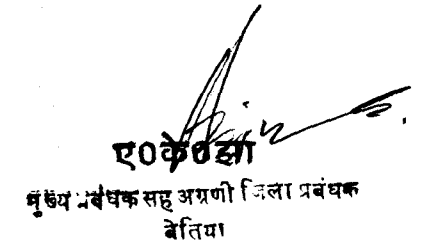 ए०के०झा
मुख्य प्रबंधक सह अग्रणी जिला प्रबंधक
बेतिया